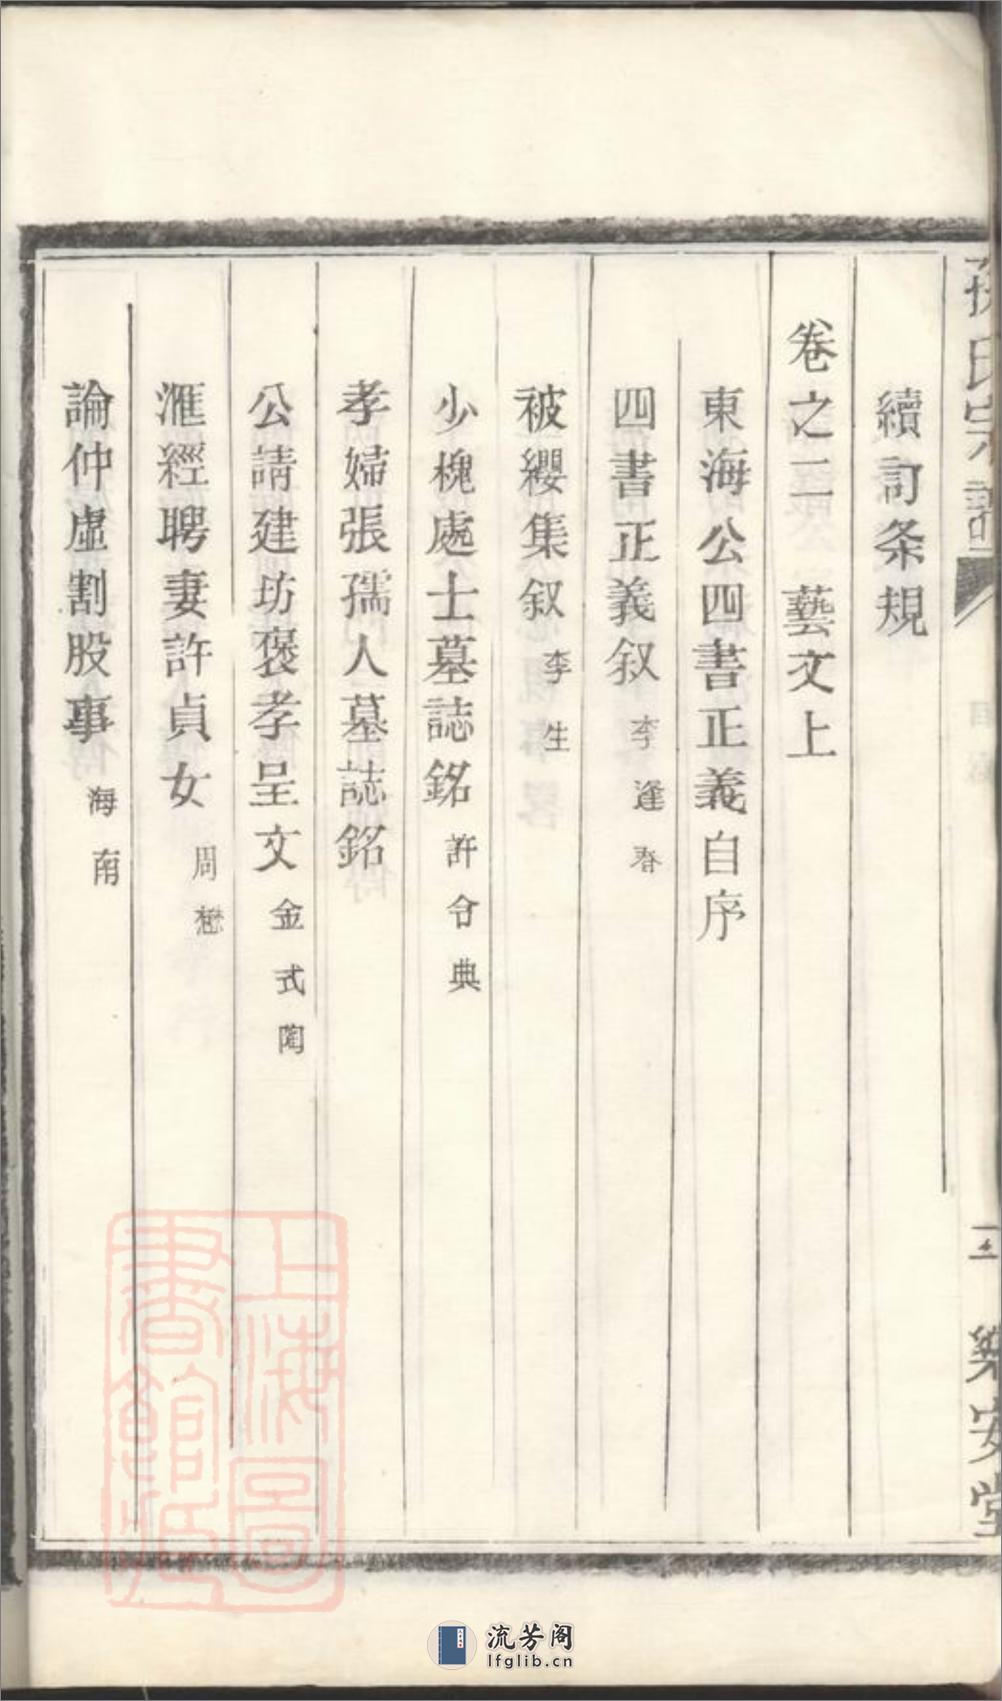 孫氏宗譜
三
樂安堂
續訂条規
卷之二　藝文上
東海公四書正義自序
四書正義叙 李逢春
被纓集叙 李生
少槐處士墓誌銘 許令典
孝婦張孺人墓誌銘
公請建坊褒孝呈文 金式陶
滙經聘妻許貞女 周懋
論仲虛割股事 海南
上海圖書館藏
流芳阁
lfglib.cn